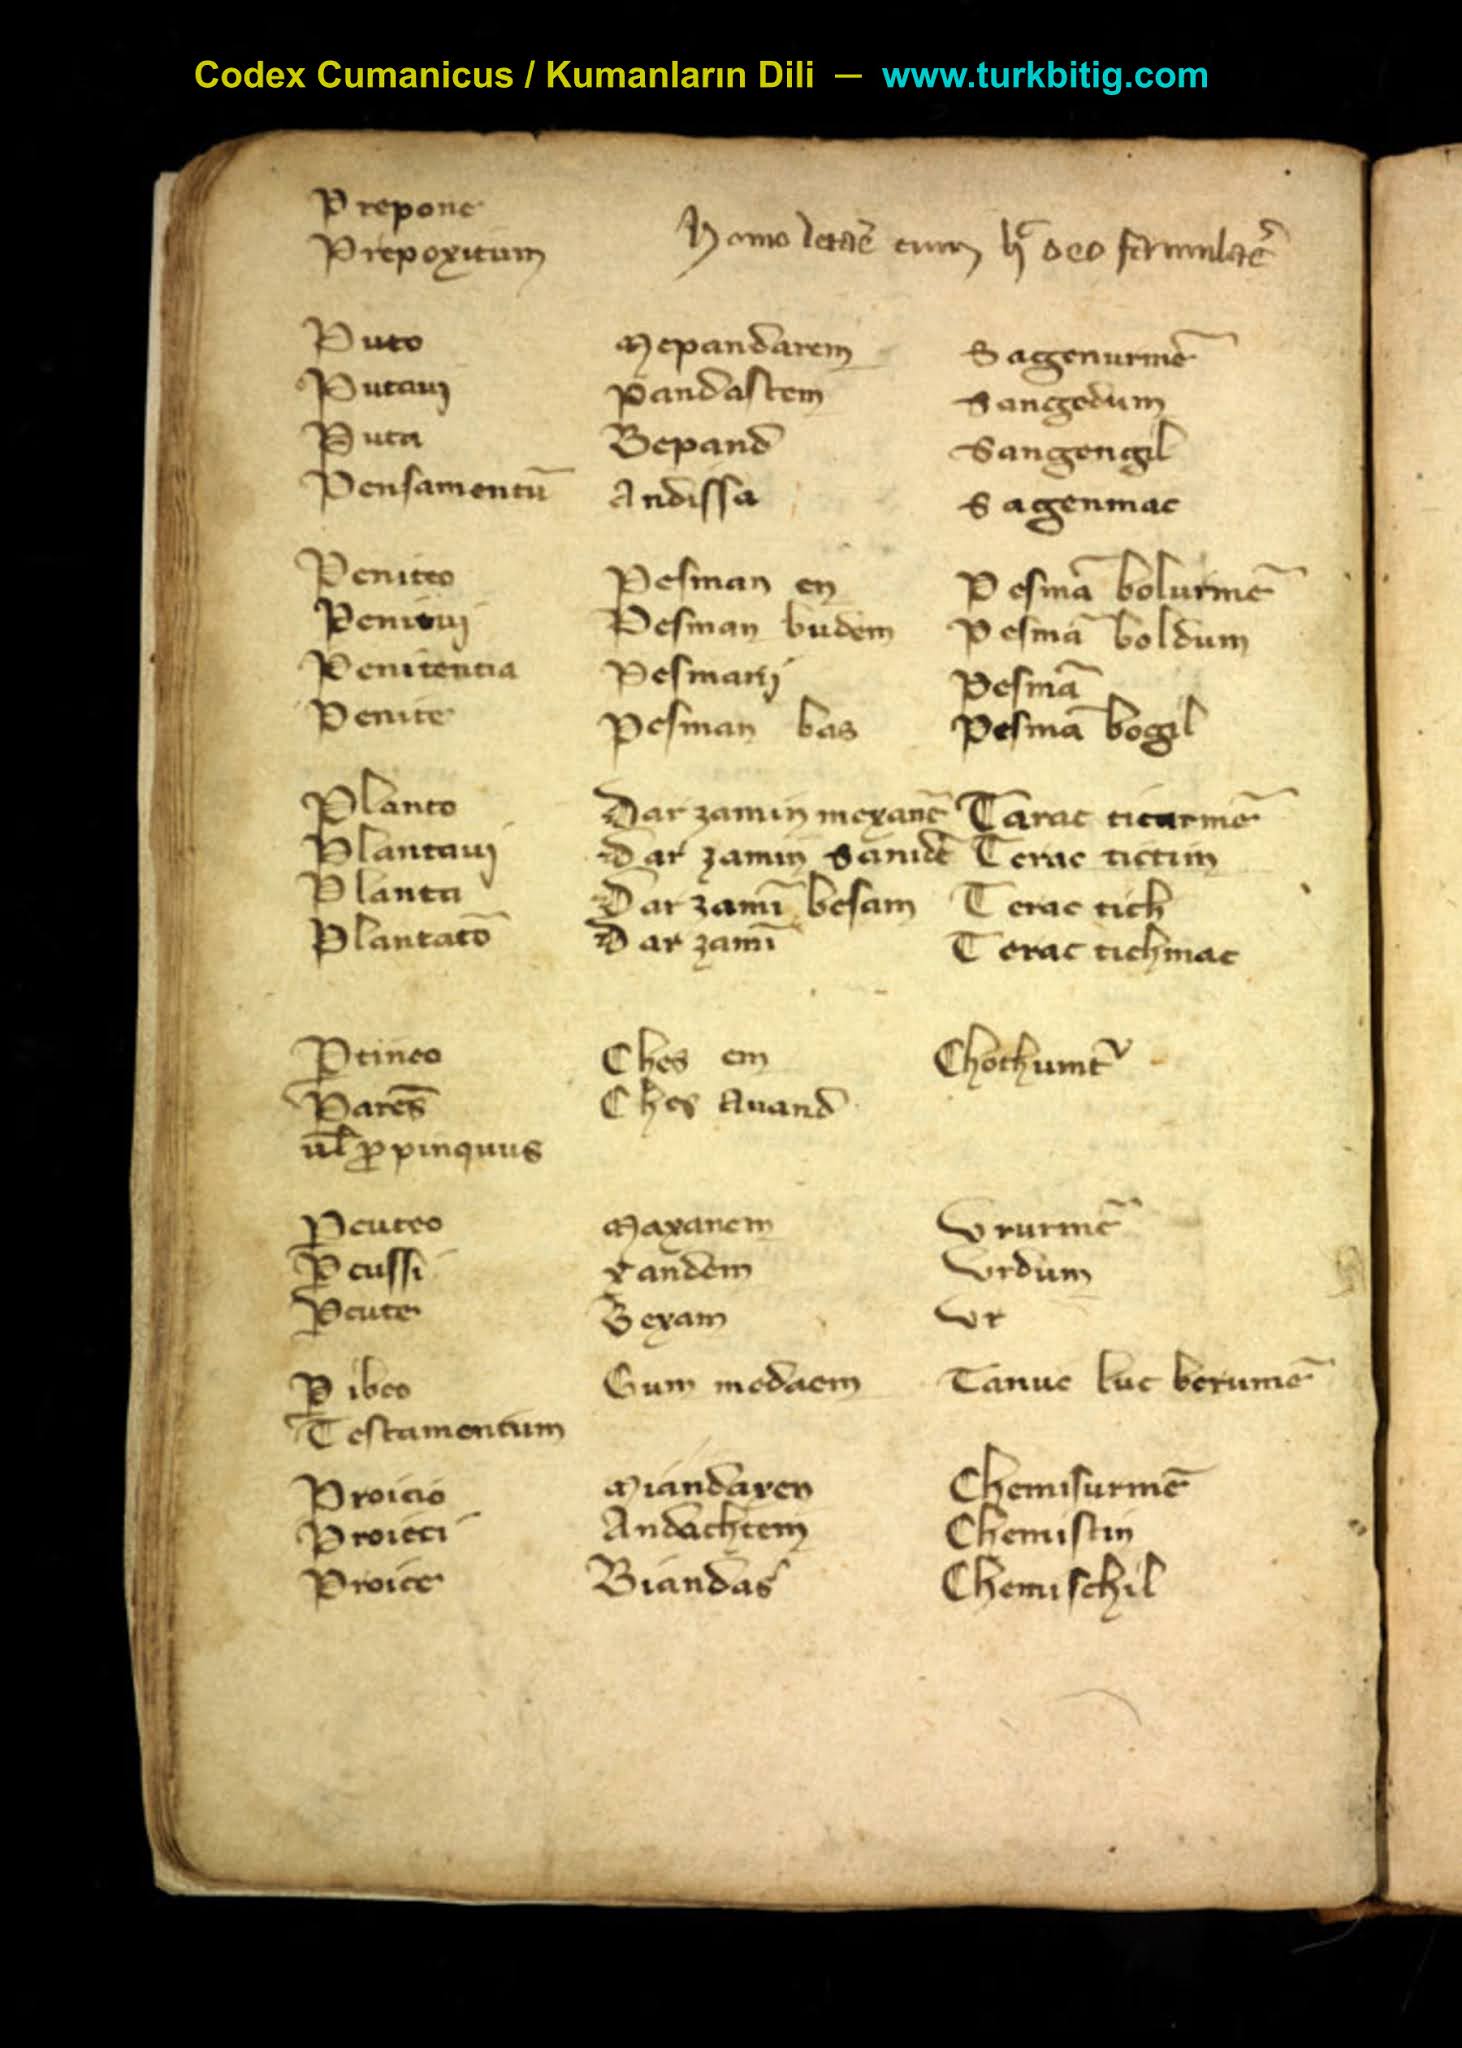 Codex Cumanicus / Kumanların Dili — www.turkbitig.com
Prepone
Prepoxitum
Homo cum deo
Puto Mepandarem Sagenurmē
Putauj Pandastem Sangedum
Puta Bepand Sangengil
Pensamentū Andissa Sagenmac
Peniteo Pesman en Pesmā bolurmē
Penitui Pesman budem Pesmā boldum
Penitentia Pesmanj Pesmā
Penite Pesman bas Pesmā bogil
Planto Dar zamin mexanē Tarac ticarmē
Plantauj Dar zamin Sanidē Terac tictim
Planta Dar zamī besam Terac tich
Plantatō Dar zamī Terac tichmac
Ptineo Ches em Chothumt
Parēs Ches Auand
ul ppinquus
Pcuteo Maxanem Vrurmē
Pcussi Xandem Vrdum
Pcute Bexam Vr
Pibeo Gum medaem Tanuc luc berumē
Testamentum
Proicio Miandaxen Chemisurmē
Proieci Andachtem Chemistin
Proice Biandas Chemischil